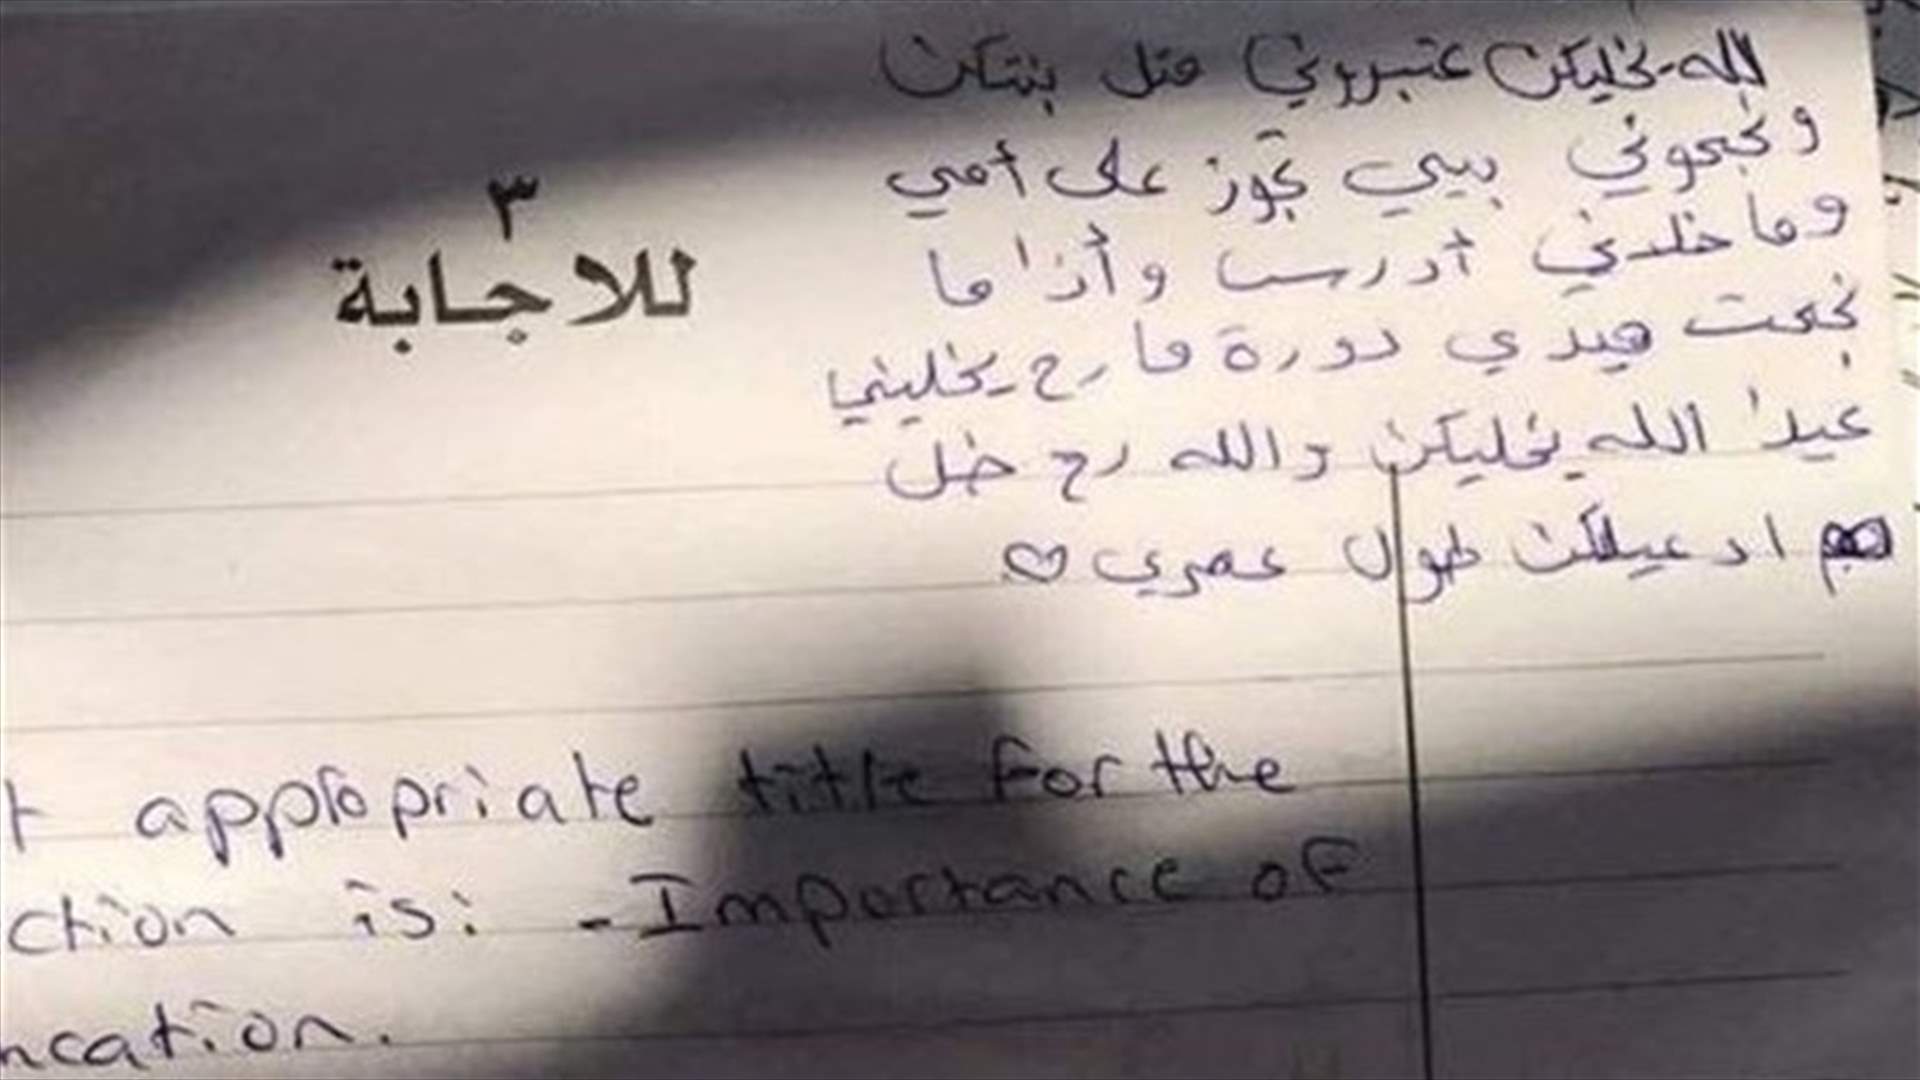 الله يخليكن عتبروني متل بنتكن
ونجحوني بيي تجوز على أمي
وما خلدني أدرس وأذا ما
نجحت هيدي دورة ما رح يخليني
عيدا الله يخليكن والله رح ضل
ادعيلكن طول عمري ♡
٣
للاجابة
appropriate title for the
ction is: - Importance of
ncation.